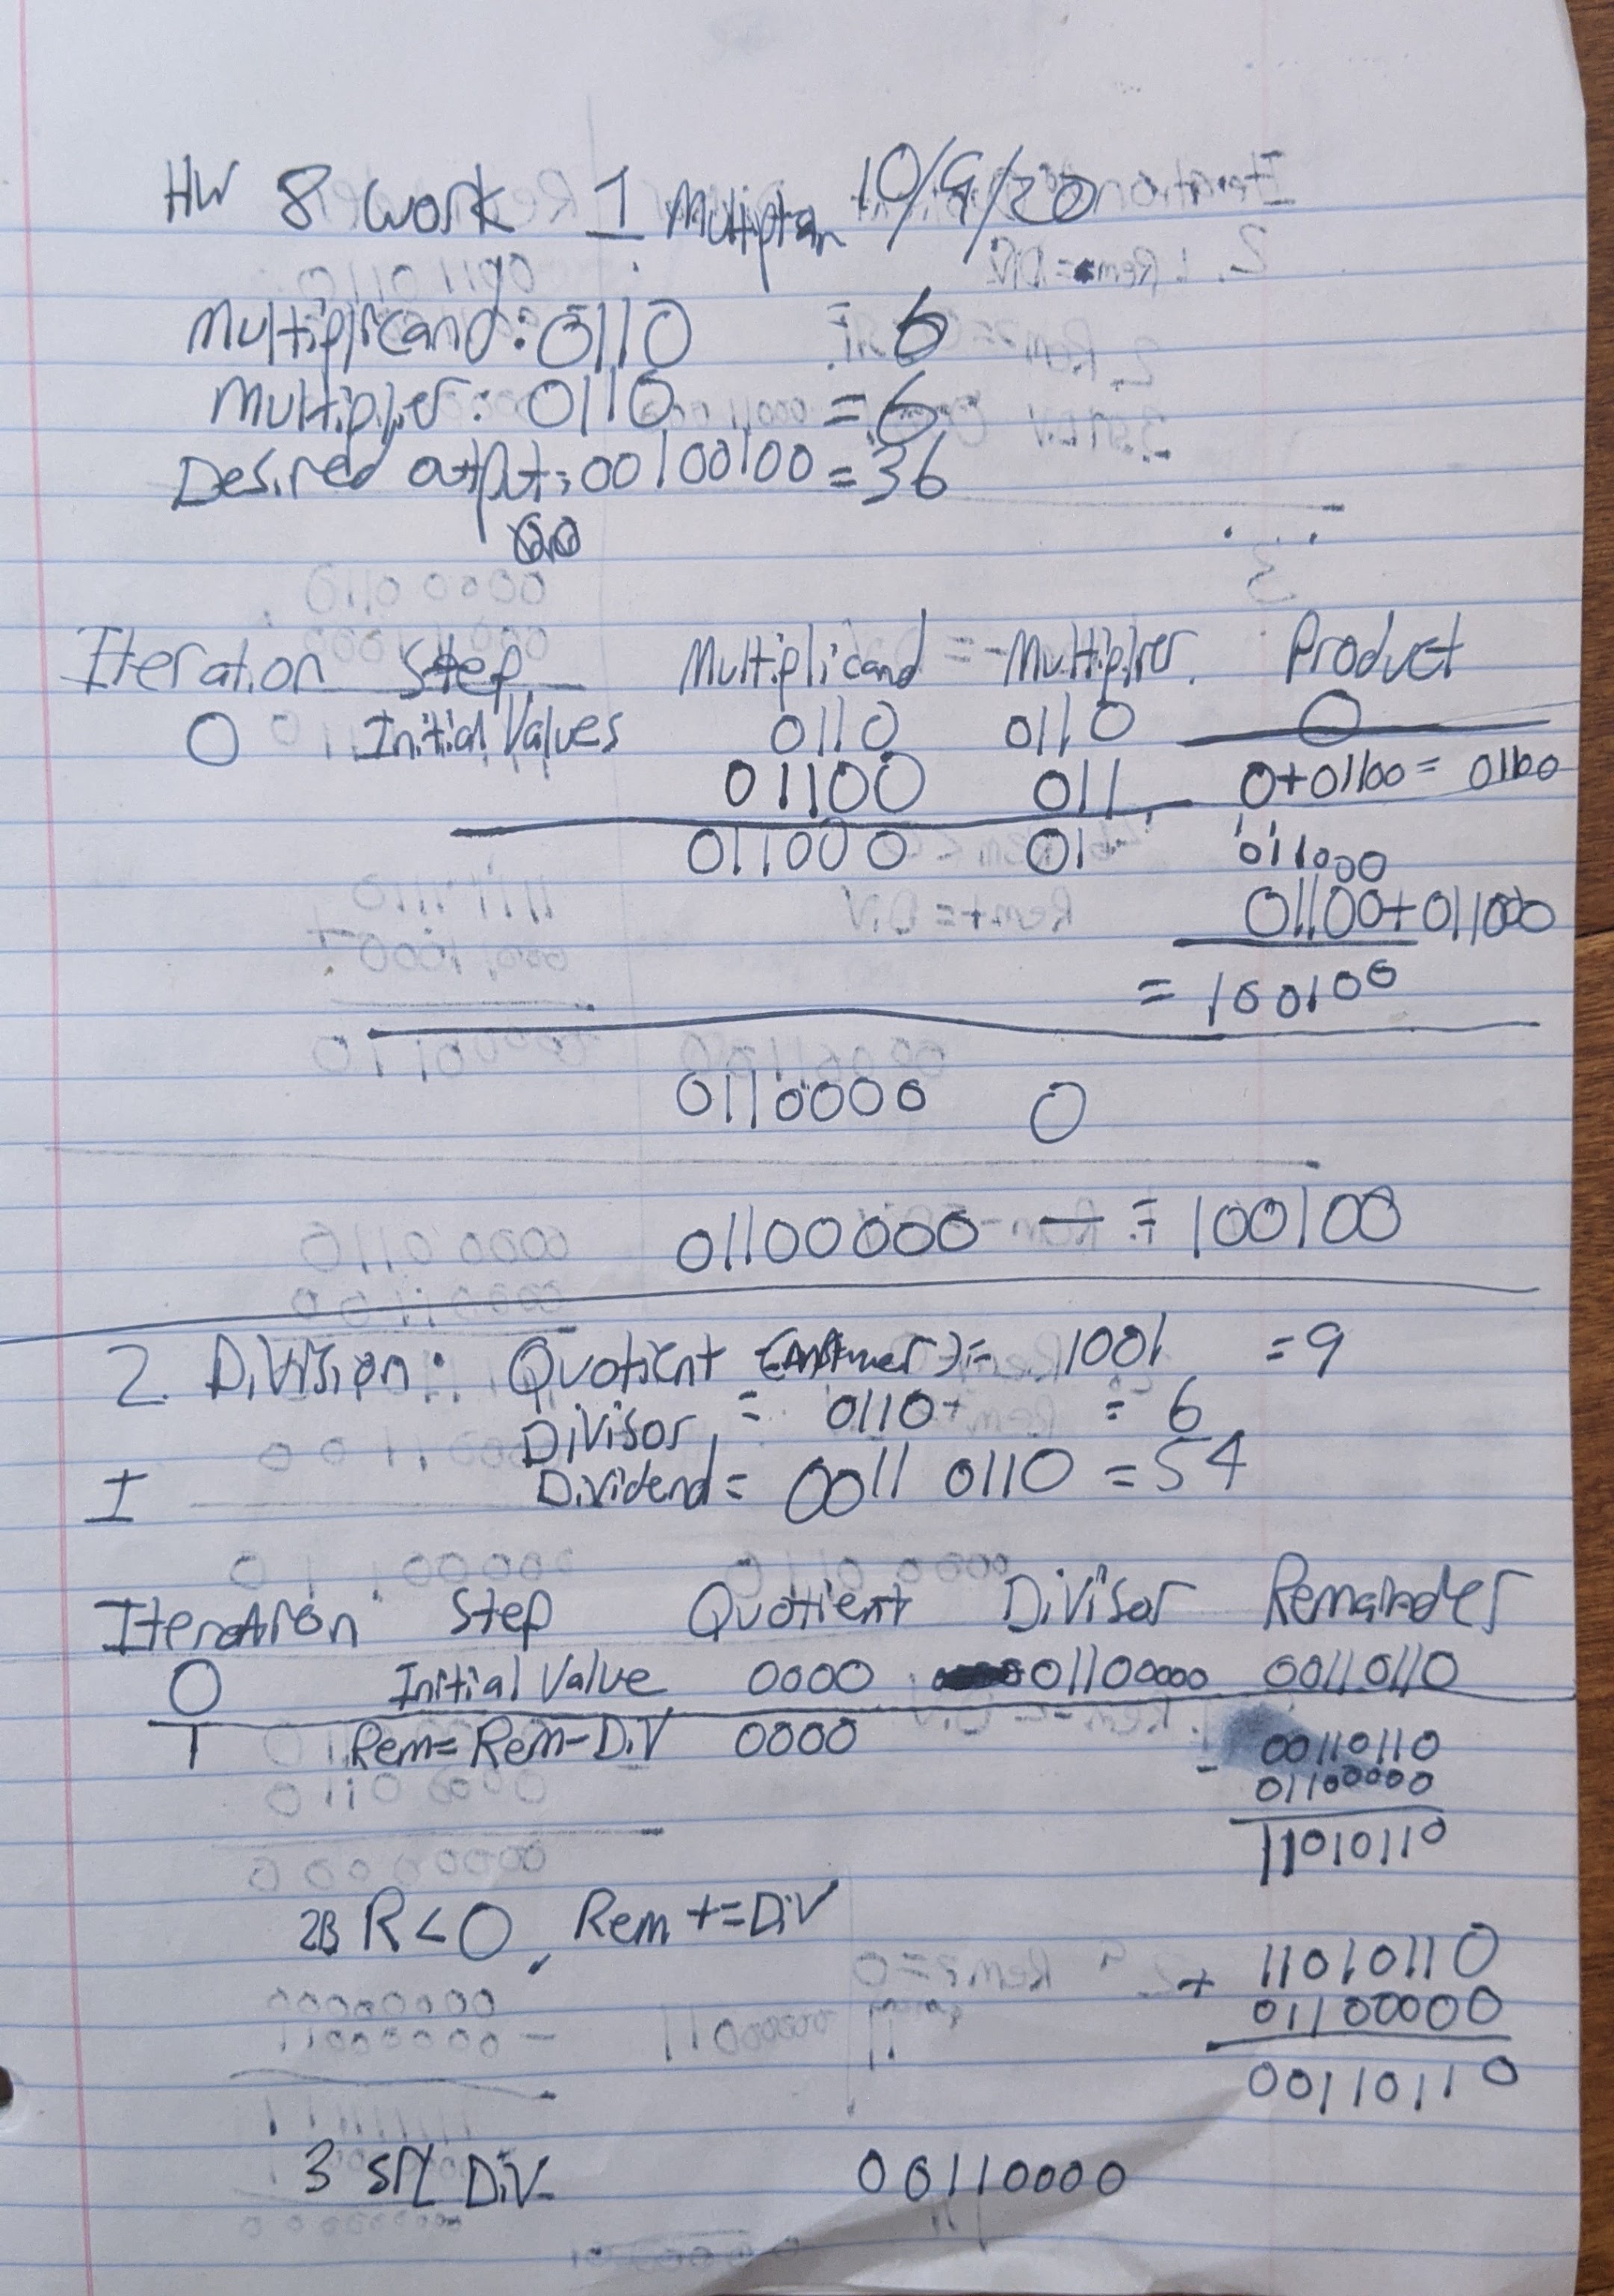 HW 8 work 1 Multiplan 10/9/20
Multiplicand: 0110 = 6
Multiplier: 0110 = 6
Desired output: 00100100 = 36
Iteration Step Multiplicand Multiplier Product
0 Initial Values 0110 0110 0
01100 011 0+01100 = 01100
011000 01 011000
01100+011000
= 100100
0110000 0
01100000 — = 100100
2. Division: Quotient (Answer) = 1001 = 9
Divisor = 0110 = 6
I Dividend = 0011 0110 = 54
Iteration Step Quotient Divisor Remainder
0 Initial Value 0000 01100000 00110110
1 Rem = Rem-DiV 0000 00110110
- 01100000
11010110
2B R<0, Rem += DiV 11010110
+ 01100000
00110110
3 SRL DiV 00110000